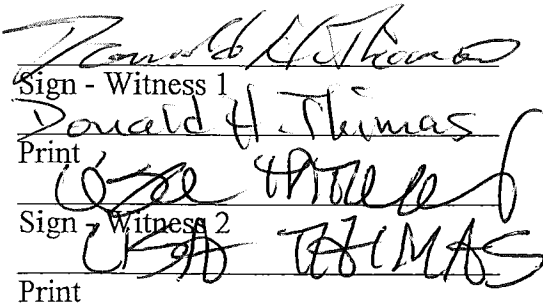 Donald H. Thomas
Sign - Witness 1
Donald H. Thomas
Print
Sign - Witness 2
THOMAS
Print